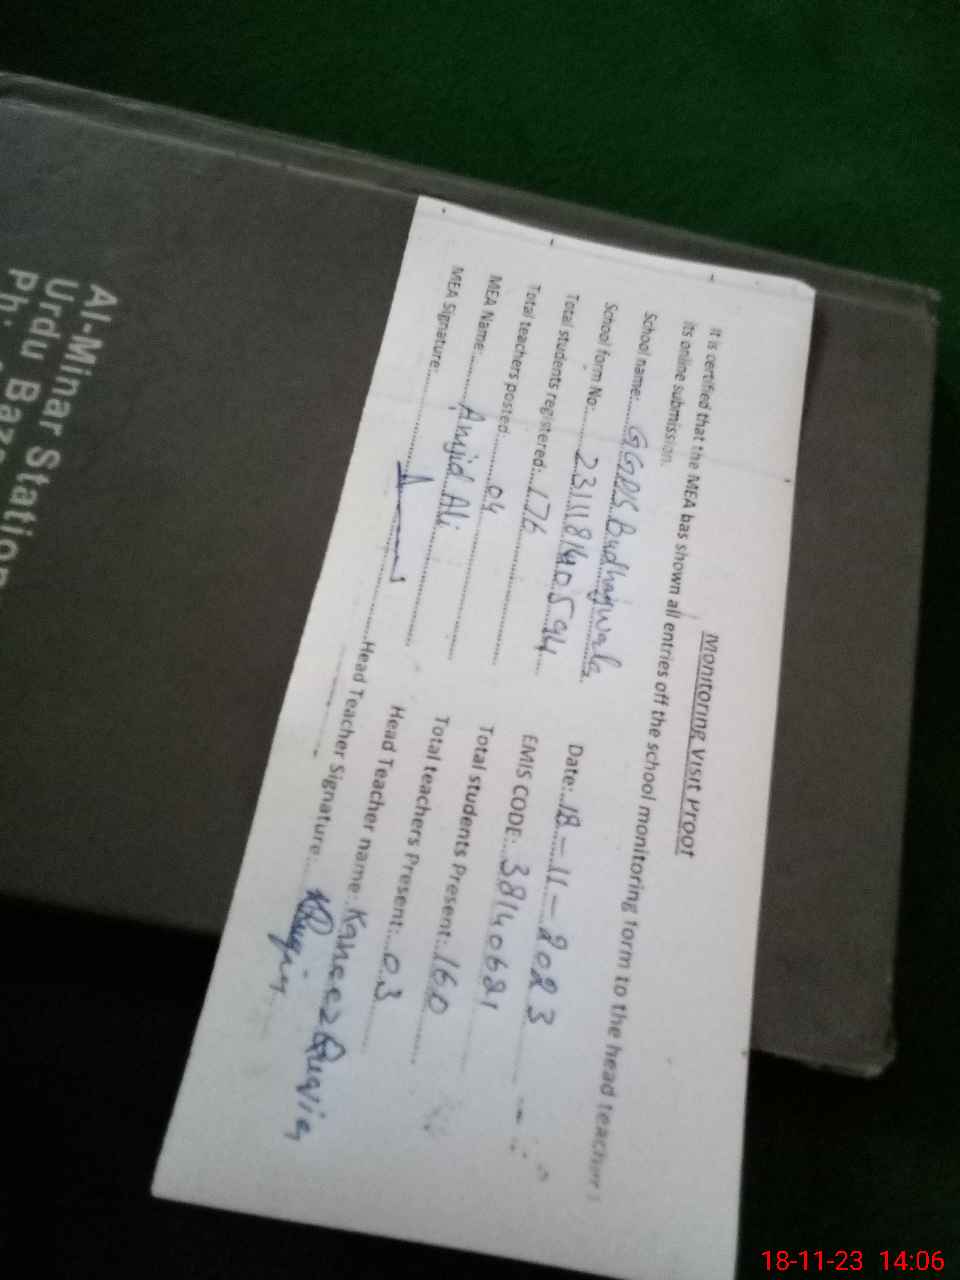 Monitoring Visit Proof
It is certified that the MEA has shown all entries off the school monitoring form to the head teacher
its online submission.
School name:.....GGPS Budhaywala
Date:..18-11-2023
School form No:.....231118140594
EMIS CODE:..38140621
Total students registered:..176
Total students Present:..160
Total teachers posted:.....04
Total teachers Present:..03
MEA Name:........Amjid Ali
Head Teacher name:.Kaneez
MEA Signature:
Head Teacher Signature:
Al-Minar Station
Urdu Baza
Ph:
18-11-23 14:06